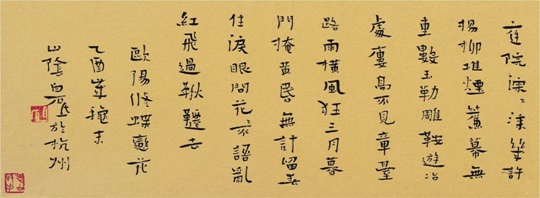 庭院深〻深幾許
楊柳堆煙簾幕無
重數玉勒雕鞍遊冶
處樓高不見章臺
路雨橫風狂三月暮
門掩黃昏無計留春
住淚眼問花〻不語亂
紅飛過鞦韆去
歐陽修蝶戀花
乙酉穐末
山陰白砥於杭州